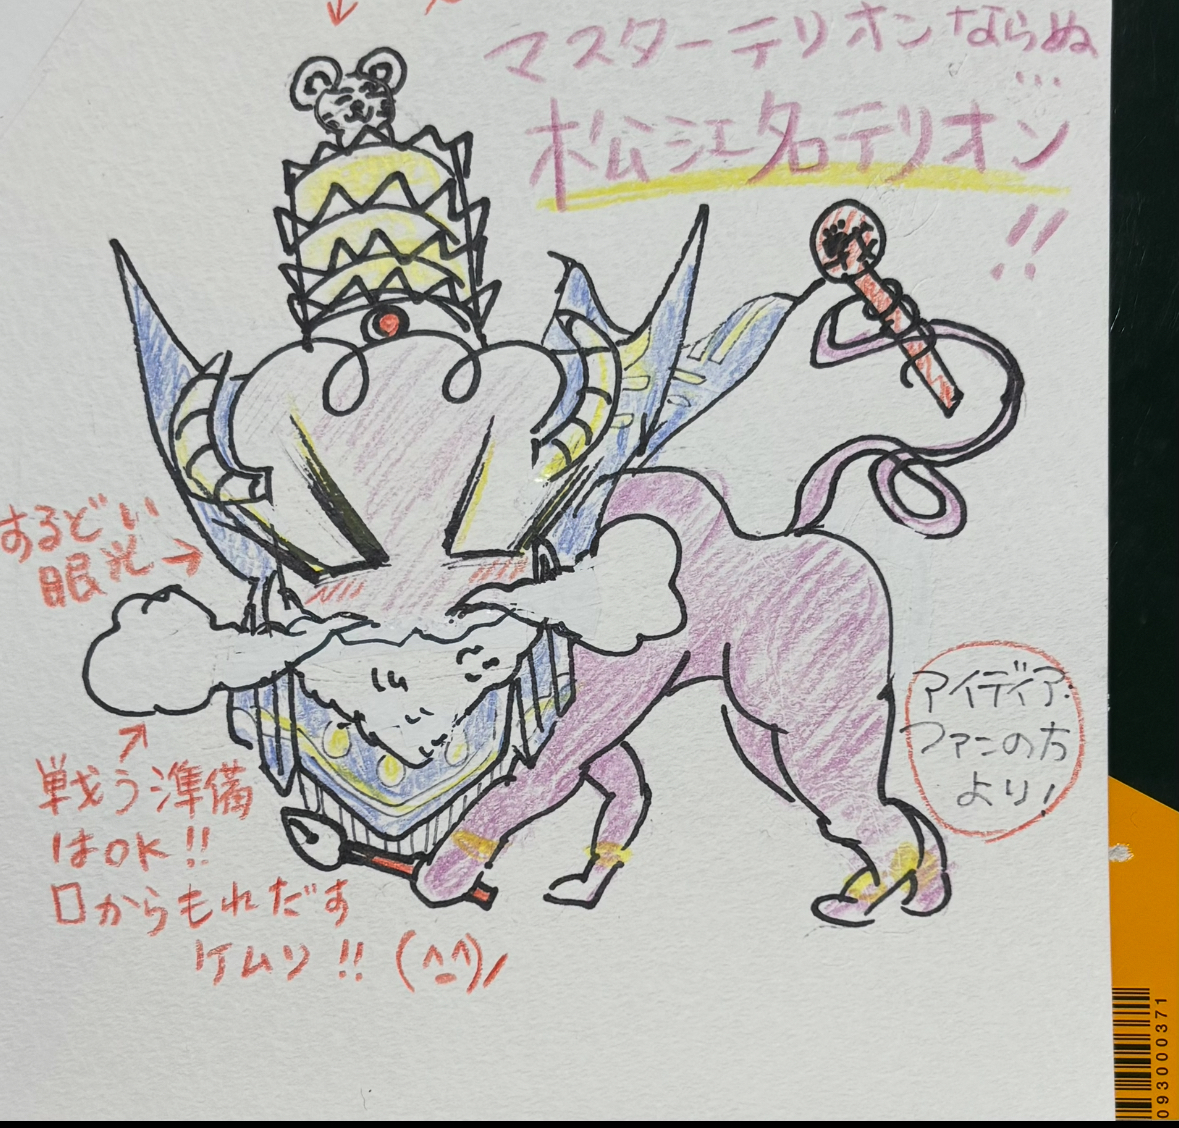 マスターテリオンならぬ
…
松江名テリオン
!!
するどい
眼光→
戦う準備
はOK!!
口からもれだす
ケムリ!!(^_^)/
アイディア・
ファンの方
より!
093000371